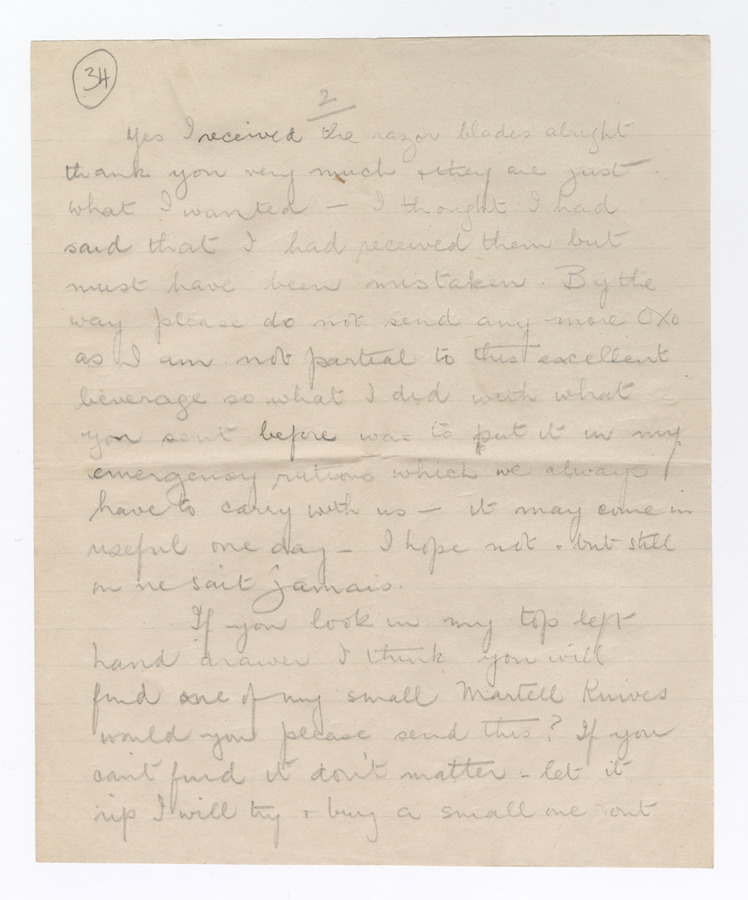 34
2
Yes I received the razor blades alright
thank you very much & they are just
what I wanted — I thought I had
said that I had received them but
must have been mistaken. By the
way please do not send any more OXO
as I am not partial to this excellent
beverage so what I did with what
you sent before was to put it in my
emergency rations which we always
have to carry with us — it may come in
useful one day — I hope not - but still
on ne sait jamais.
If you look in my top left
hand drawer I think you will
find one of my small Martell Knives
would you please send this? If you
can't find it don't matter - let it
rip I will try & buy a small one out